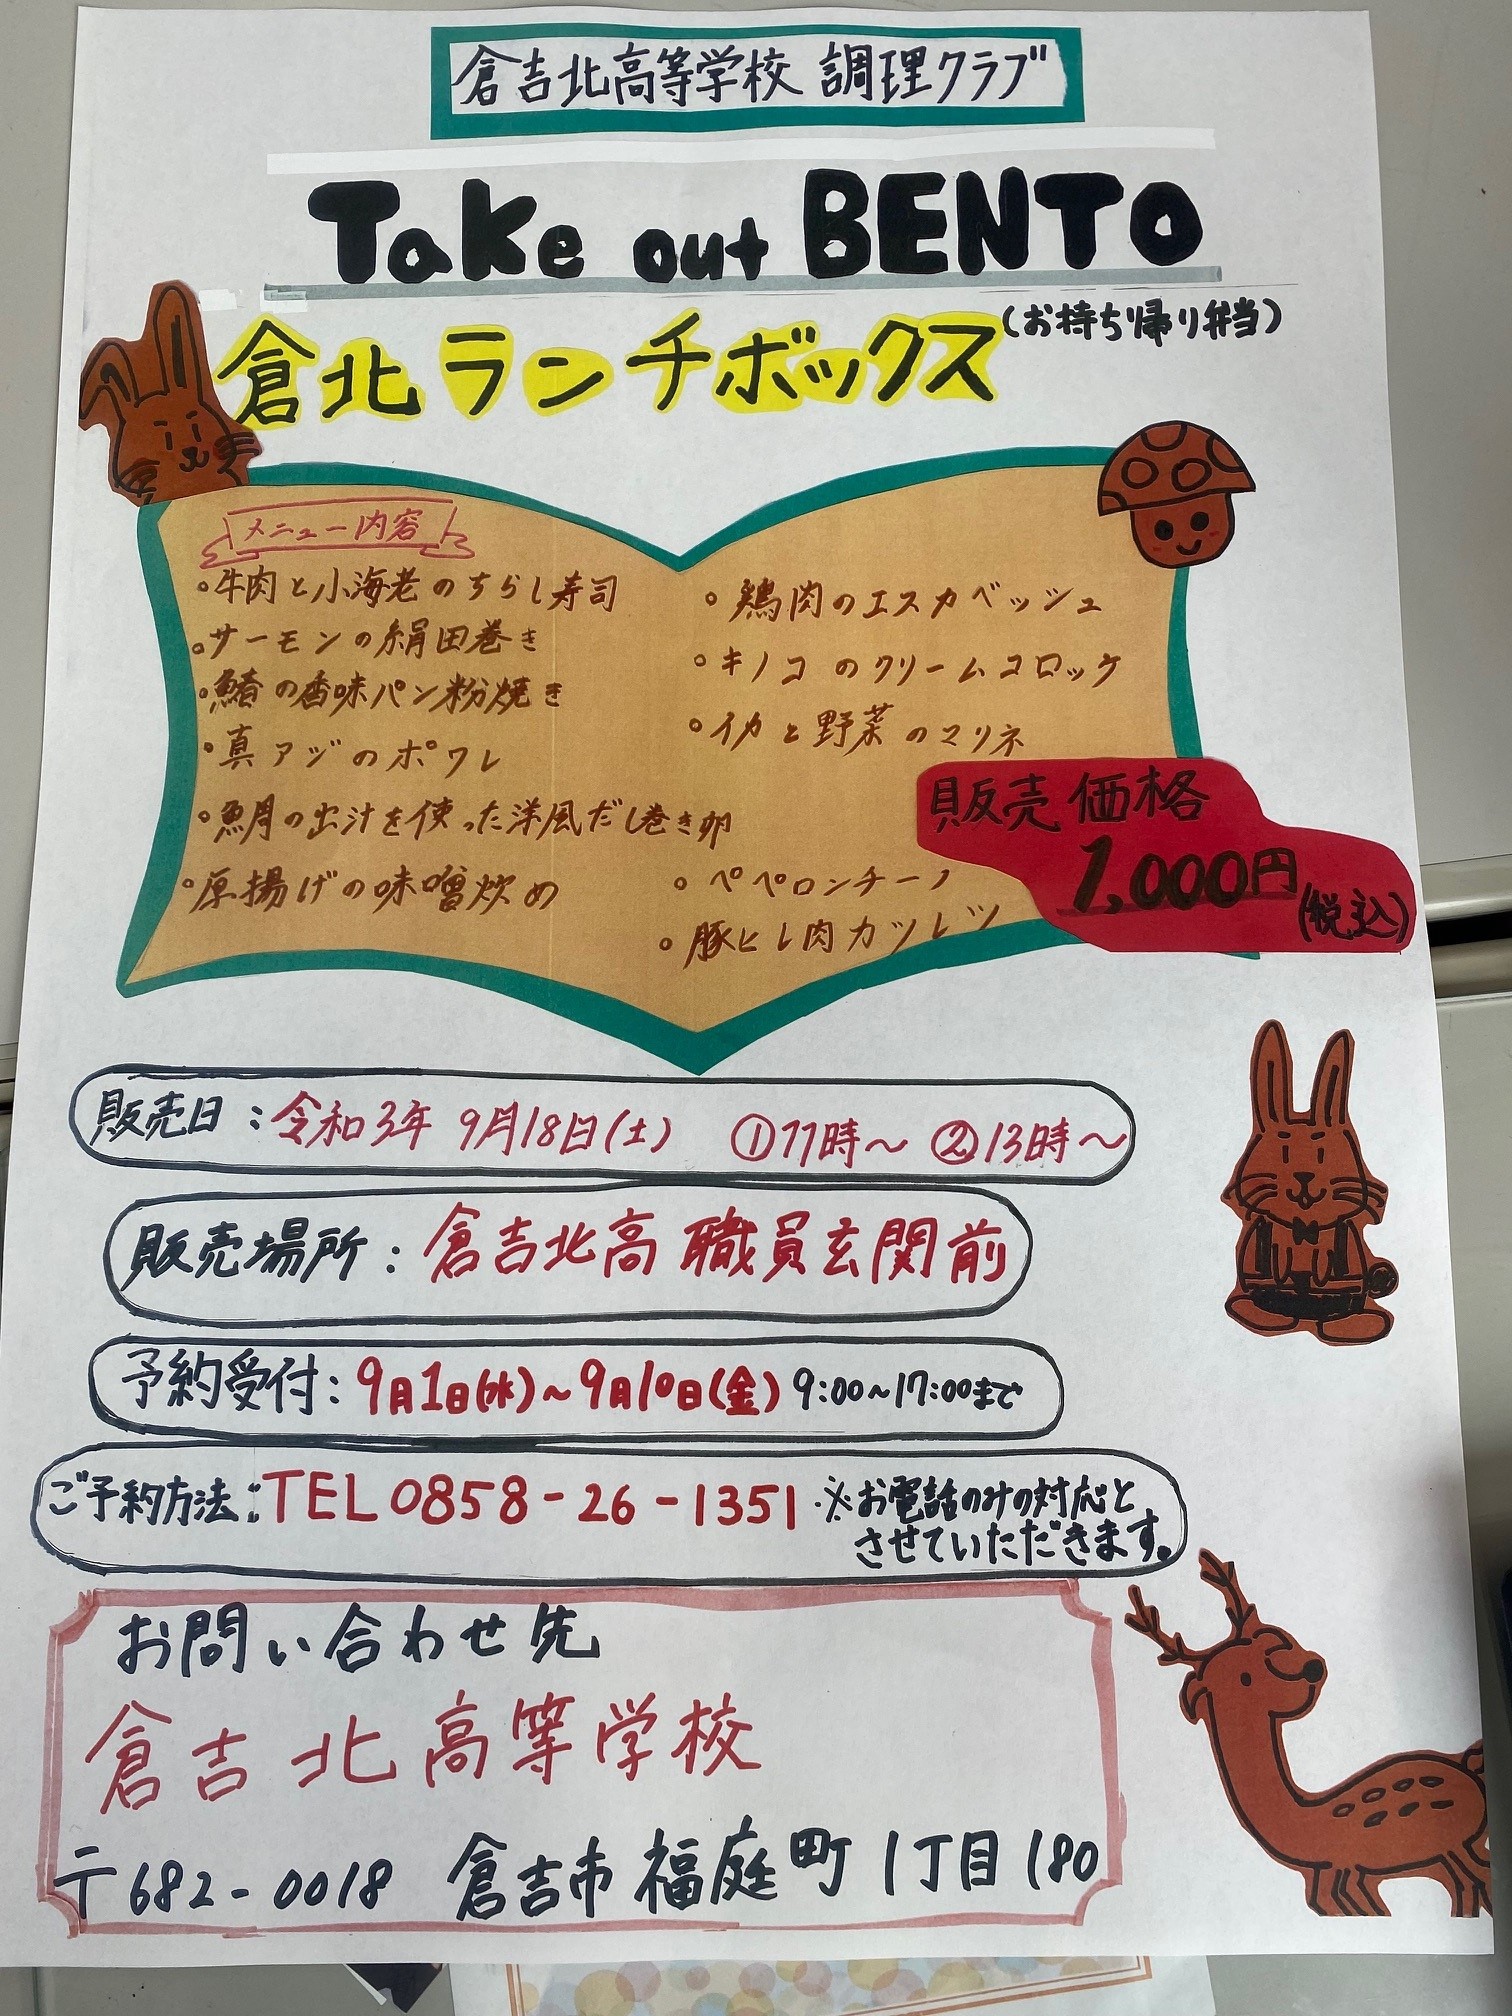 倉吉北高等学校 調理クラブ
Take out BENTO
倉北ランチボックス(お持ち帰り弁当)
メニュー内容
・牛肉と小海老のちらし寿司
・サーモンの絹田巻き
・鰆の香味パン粉焼き
・真アジのポワレ
・鯛の出汁を使った洋風だし巻き卵
・厚揚げの味噌炊め
・鶏肉のエスカベッシュ
・キノコのクリームコロッケ
・イカと野菜のマリネ
・ペペロンチーノ
・豚ヒレ肉カツレツ
販売価格
1,000円(税込)
販売日:令和3年 9月18日(土) ①11時～ ②13時～
販売場所:倉吉北高 職員玄関前
予約受付:9月1日(水)～9月10日(金) 9:00～17:00まで
ご予約方法:TEL 0858-26-1351 ※お電話のみの対応と
させていただきます。
お問い合わせ先
倉吉北高等学校
〒682-0018 倉吉市福庭町1丁目180